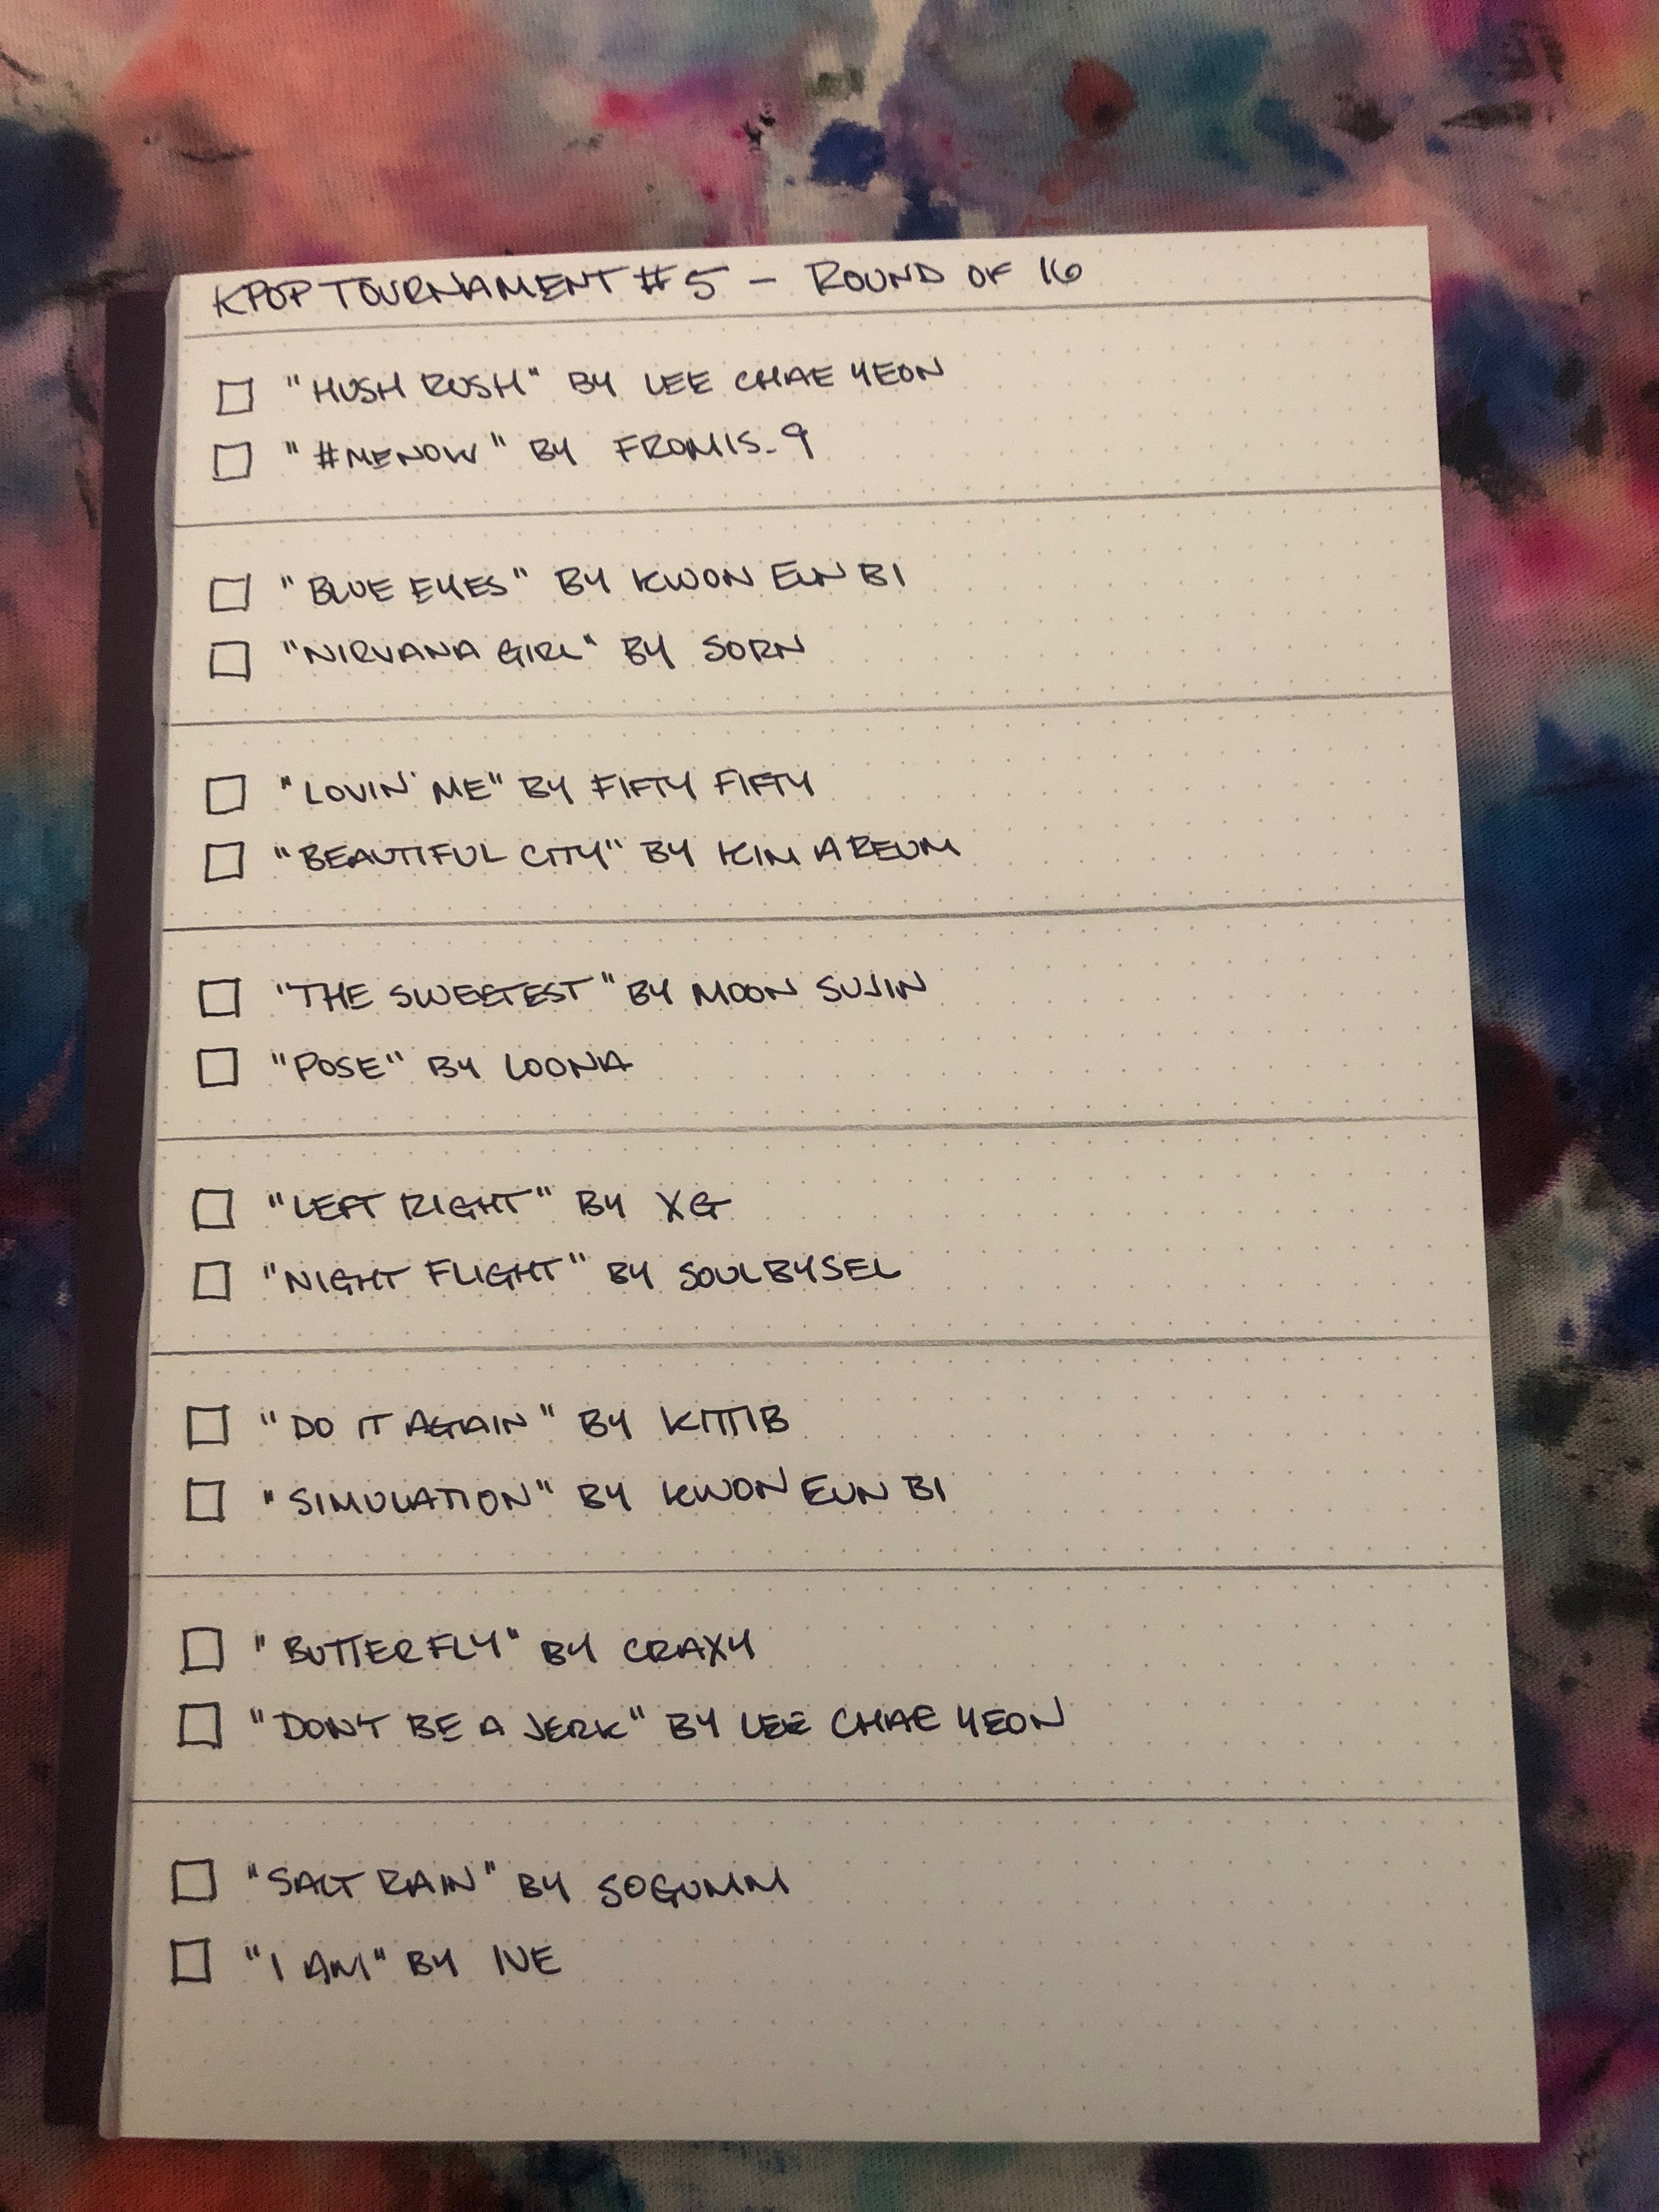 KPOP TOURNAMENT #5 - ROUND OF 16
"HUSH RUSH" BY LEE CHAE YEON
"#MENOW" BY FROMIS_9
"BLUE EYES" BY KWON EUN BI
"NIRVANA GIRL" BY SORN
"LOVIN' ME" BY FIFTY FIFTY
"BEAUTIFUL CITY" BY KIM AREUM
"THE SWEETEST" BY MOON SUJIN
"POSE" BY LOONA
"LEFT RIGHT" BY XG
"NIGHT FLIGHT" BY SOULBYSEL
"DO IT AGAIN" BY KITTIB
"SIMULATION" BY KWON EUN BI
"BUTTERFLY" BY CRAXY
"DON'T BE A JERK" BY LEE CHAE YEON
"SALT RAIN" BY SOGUMM
"I AM" BY IVE